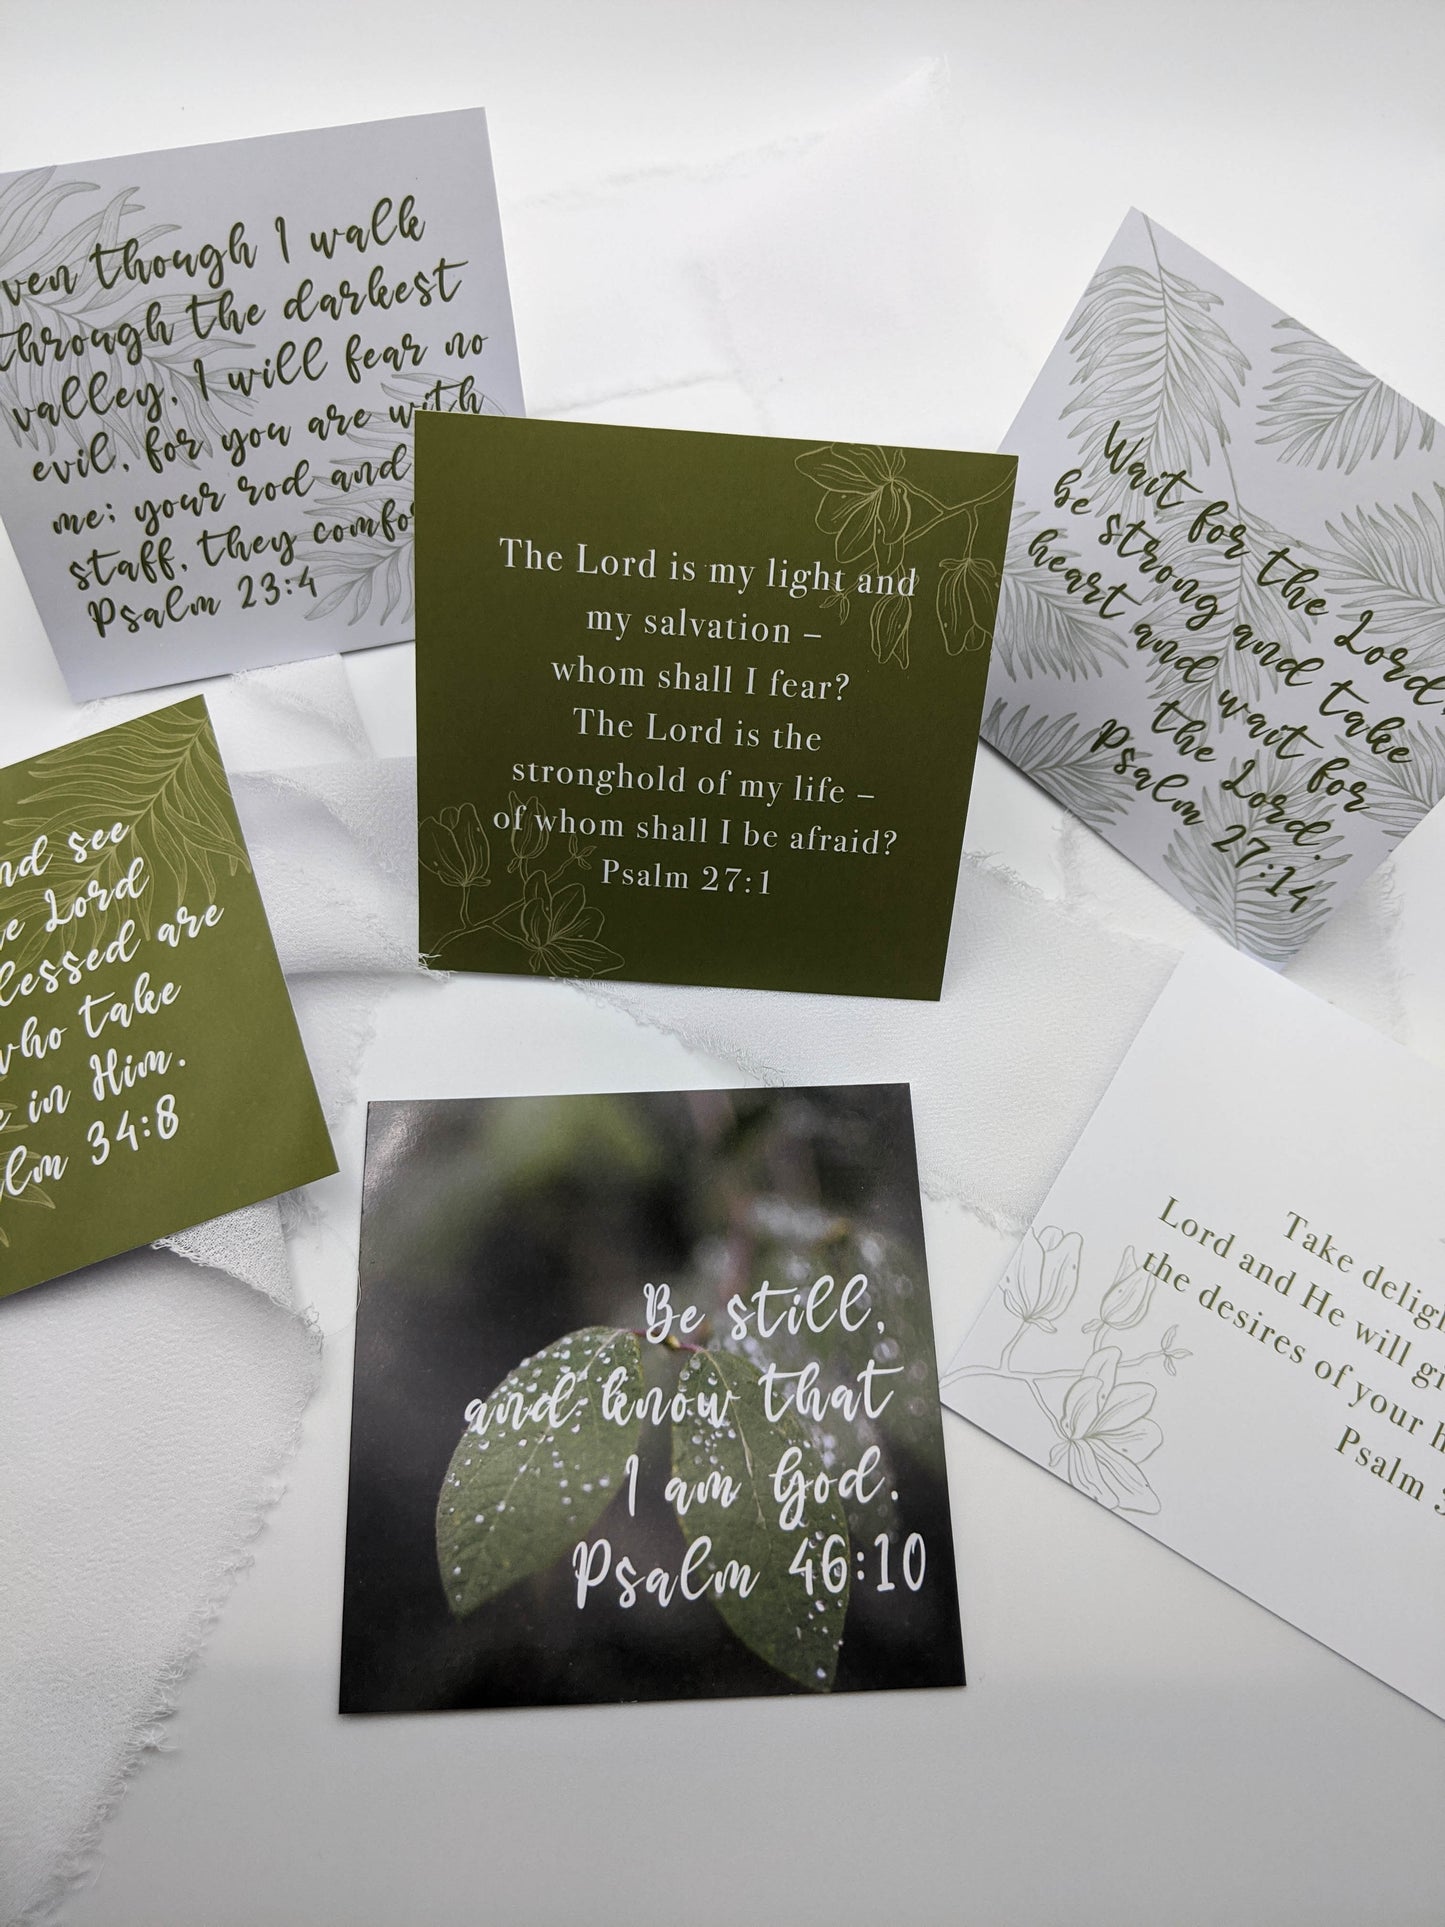 ven though I walk
through the darkest
valley, I will fear no
evil, for you are with
me; your rod and
staff, they comfo
Psalm 23:4
The Lord is my light and
my salvation –
whom shall I fear?
The Lord is the
stronghold of my life –
of whom shall I be afraid?
Psalm 27:1
Wait for the Lord;
be strong and take
heart and wait for
the Lord.
Psalm 27:14
nd see
e Lord
lessed are
who take
e in Him.
alm 34:8
Be still,
and know that
I am God.
Psalm 46:10
Take deligh
Lord and He will gi
the desires of your h
Psalm 3